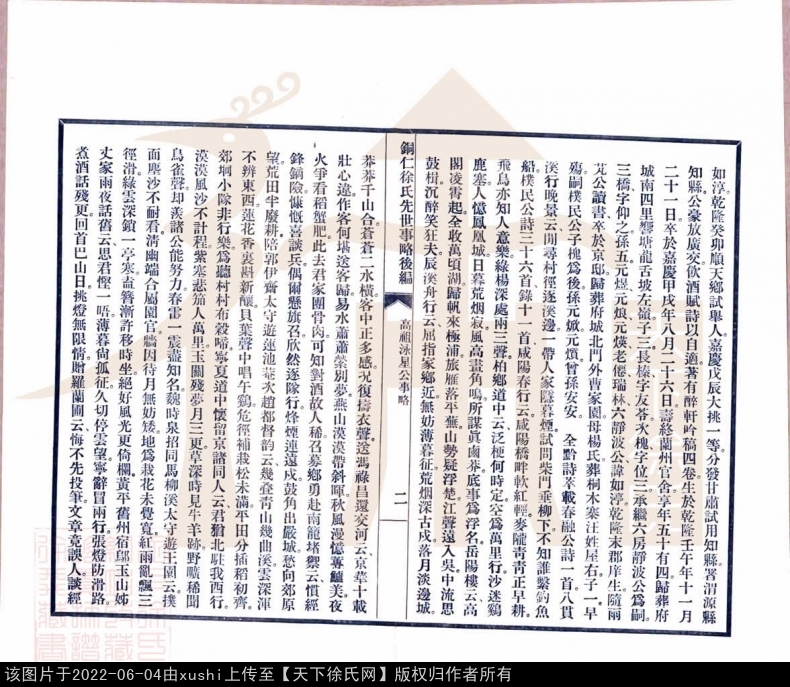 如淳乾隆癸卯順天鄉試舉人嘉慶戊辰大挑一等分發甘肅試用知縣署渭源縣
知縣公豪放廣交飲酒賦詩以自適著有醉軒吟稿四卷生於乾隆壬午年十一月
二十一日卒於嘉慶甲戌年八月二十六日壽終蘭州官舍享年五十有四歸葬府
城南四里響塘龍舌坡左嶺子三長榛字友荃次槐字位三承繼六房靜波公爲嗣
三橋字仰之孫五元煜元烺元煐老僊瑞林六靜波公諱如淳乾隆末郡庠生隨兩
芃公讀書卒於京邸歸葬府城北門外曹家園母楊氏葬桐木寨汪姓屋右子一早
殤嗣樸民公子槐爲後孫元烻元熉曾孫安安　全黔詩萃載春融公詩一首八貫
溪行晚景云閒尋村徑逐溪邊一帶人家隱暮煙試問柴門垂柳下不知誰繫釣魚
船樸民公詩三十六首錄十一首咸陽春行云咸陽橋畔軟紅輕麥隴青青正早耕
飛鳥亦知人意樂綠楊深處兩三聲柏鄉道中云泛梗何時定空爲萬里行沙迷鶡
鹿塞人憶鳳凰城日暮荒烟寂風高畫角鳴所謀眞鹵莽底事爲浮名岳陽樓云高
閣凌霄起全收萬頃湖歸帆來極浦旅雁落平蕪山勢疑浮楚江聲遠入吳中流思
鼓楫沉醉笑狂夫辰溪舟行云屈指家鄉近無妨薄暮征荒烟深古戍落月淡邊城
銅仁徐氏先世事略後編
高祖泳星公事略
二
莽莽千山合蒼蒼二水橫客中正多感况復擣衣聲送馮祿昌還交河云京華十載
壯心違作客何堪送客歸易水蕭蕭縈別夢燕山漠漠帶斜暉秋風漫憶蓴鱸美夜
火爭看稻蟹肥此去君家團骨肉可知對酒故人稀召募鄉勇赴南籠堵禦云慣經
鋒鏑險慷慨喜談兵偶爾懸旗召欣然逐隊行烽煙連遠戍鼓角出嚴城愁向郊原
望荒田半廢耕陪郭伊齋太守遊蓮池菴次趙都督韵云幾疊青山幾曲溪雲深渾
不辨東西蓮花香裏斟新釀貝葉聲中唱午鷄危徑補栽松未滿平田分插稻初齊
郊坰小隊非行樂爲聽村村布穀啼寧夏道中懷留京諸同人云君猶北駐我西行
漠漠風沙不計程紫塞悲笳人萬里玉關殘夢月三更草深時見牛羊跡野曠稀聞
鳥雀聲却羨諸公能努力春雷一震盡知名魏時泉招同馬柳溪太守遊王園云撲
面塵沙不耐看清幽端合屬園官牆因待月無妨矮地爲栽花未覺寬紅雨亂飄三
徑滑綠雲深鎖一亭寒盍簪漸許移時坐絕好風光更倚欄黃平舊州宿鄔玉山姊
丈家雨夜話舊云思君慳一晤薄暮尙孤征久切停雲望寧辭冒雨行張燈防滑路
煮酒話殘更回首巴山日挑燈無限情贈羅蘭圃云悔不先投筆文章竟誤人談經
该图片于2022-06-04由xushi上传至【天下徐氏网】版权归作者所有